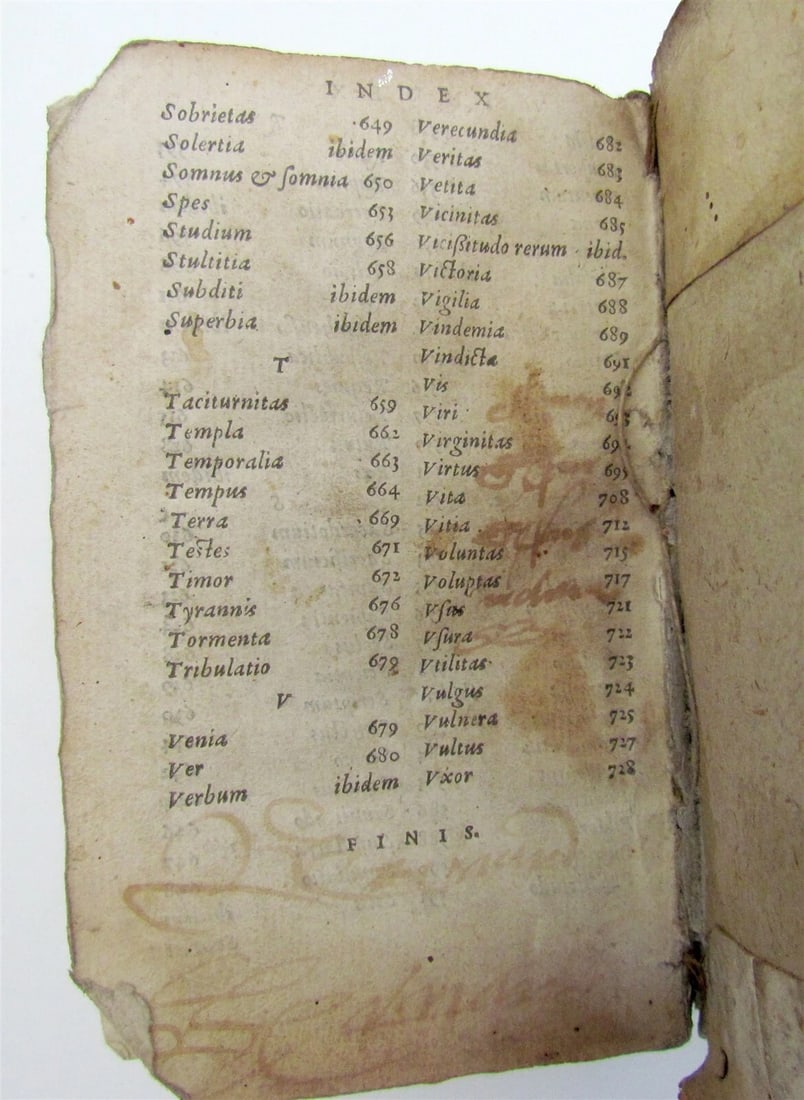 INDEX
Sobrietas 649
Solertia ibidem
Somnus & ſomnia 650
Spes 653
Studium 656
Stultitia 658
Subditi ibidem
Superbia ibidem
T
Taciturnitas 659
Templa 662
Temporalia 663
Tempus 664
Terra 669
Teſtes 671
Timor 672
Tyrannis 676
Tormenta 678
Tribulatio 679
V
Venia 679
Ver 680
Verbum ibidem
Verecundia 682
Veritas 683
Vetita 684
Vicinitas 685
Viciſsitudo rerum ibid.
Victoria 687
Vigilia 688
Vindemia 689
Vindicta 691
Vis
Viri
Virginitas
Virtus 695
Vita 708
Vitia 712
Voluntas 715
Voluptas 717
Vſus 721
Vſura 722
Vtilitas 723
Vulgus 724
Vulnera 725
Vultus 727
Vxor 728
FINIS.